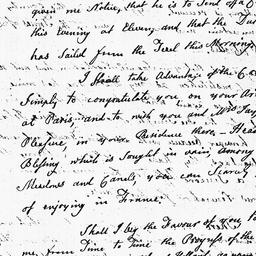 given me Notice, that he is to Send off a
this Evening at Eleven, and that the
has Saild from the Texel this Morning
I Shall take Advantage of the
Simply to congratulate you on your
at Paris and to wish you and Mrs
Pleasure in your Residence there. Hea
Blessing which is Sought in vain, among
Meadows and Canals, you can Scarce
of enjoying in France.
Shall I beg the Favour of you, to
me, from Time to Time the Progress of the